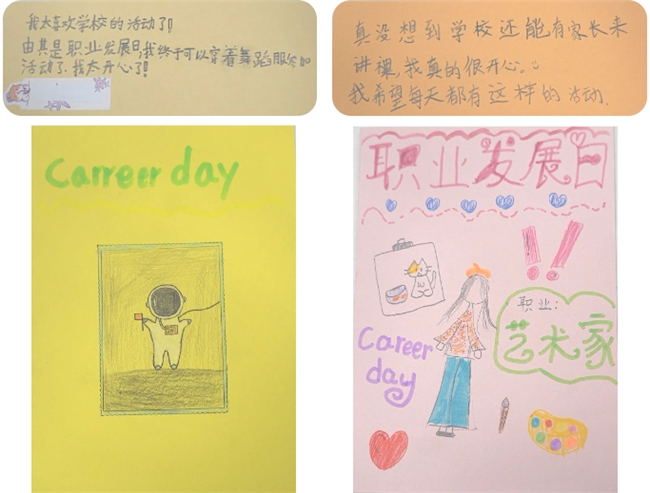 我太喜欢学校的活动了!
由其是职业发展日,我终于可以穿着舞蹈服参加
活动了,我太开心了!
真没想到学校还能有家长来
讲课,我真的很开心。
我希望每天都有这样的活动.
Carreer day
职业发展日
!!
职业:
艺术家
Career
day